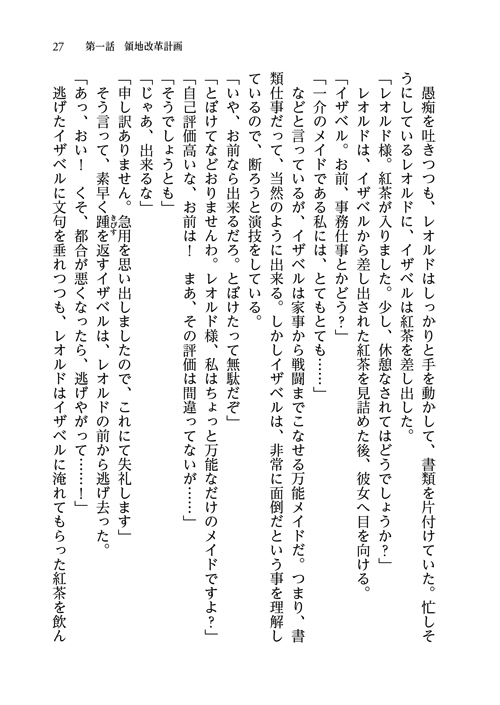 27　第一話　領地改革計画
　愚痴を吐きつつも、レオルドはしっかりと手を動かして、書類を片付けていた。忙しそ
うにしているレオルドに、イザベルは紅茶を差し出した。
「レオルド様。紅茶が入りました。少し、休憩なされてはどうでしょうか？」
　レオルドは、イザベルから差し出された紅茶を見詰めた後、彼女へ目を向ける。
「イザベル。お前、事務仕事とかどう？」
「一介のメイドである私には、とてもとても……」
　などと言っているが、イザベルは家事から戦闘までこなせる万能メイドだ。つまり、書
類仕事だって、当然のように出来る。しかしイザベルは、非常に面倒だという事を理解し
ているので、断ろうと演技をしている。
「いや、お前なら出来るだろ。とぼけたって無駄だぞ」
「とぼけてなどおりませんわ。レオルド様、私はちょっと万能なだけのメイドですよ？」
「自己評価高いな、お前は！　まあ、その評価は間違ってないが……」
「そうでしょうとも」
「じゃあ、出来るな」
「申し訳ありません。急用を思い出しましたので、これにて失礼します」
　そう言って、素早く踵きびすを返すイザベルは、レオルドの前から逃げ去った。
「あっ、おい！　くそ、都合が悪くなったら、逃げやがって……！」
　逃げたイザベルに文句を垂れつつも、レオルドはイザベルに淹れてもらった紅茶を飲ん